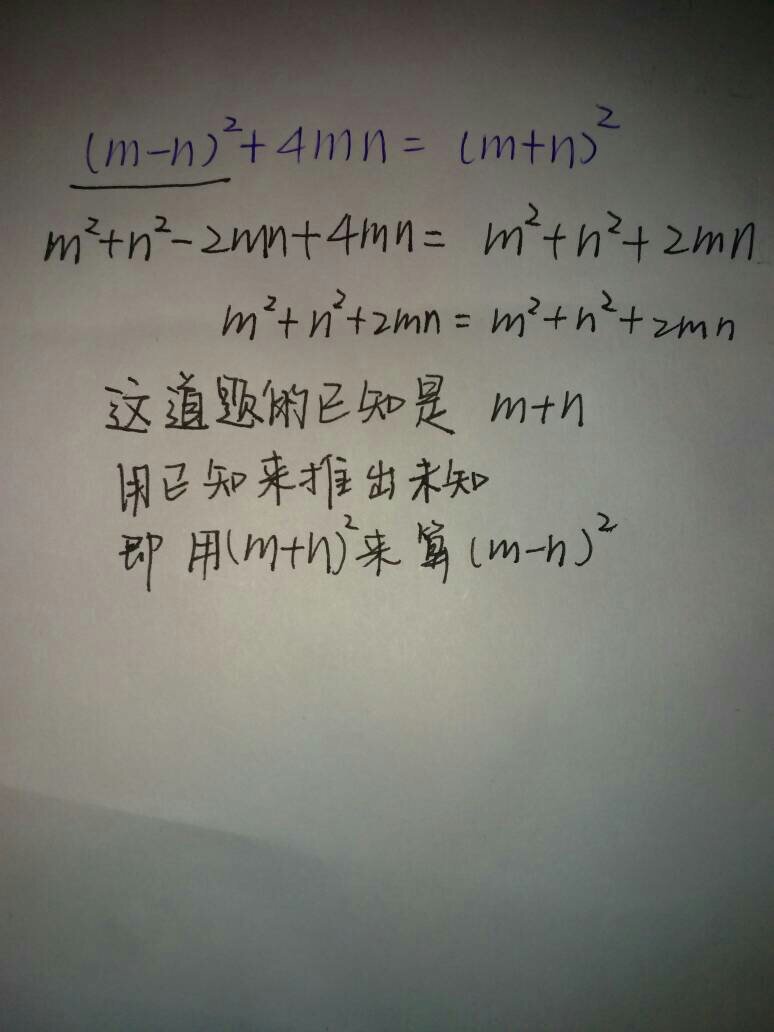 (m-n)²+4mn= (m+n)²
m²+n²-2mn+4mn= m²+n²+2mn
m²+n²+2mn=m²+n²+2mn
这道题的已知是 m+n
用已知来推出未知
即用(m+n)²来算(m-n)²